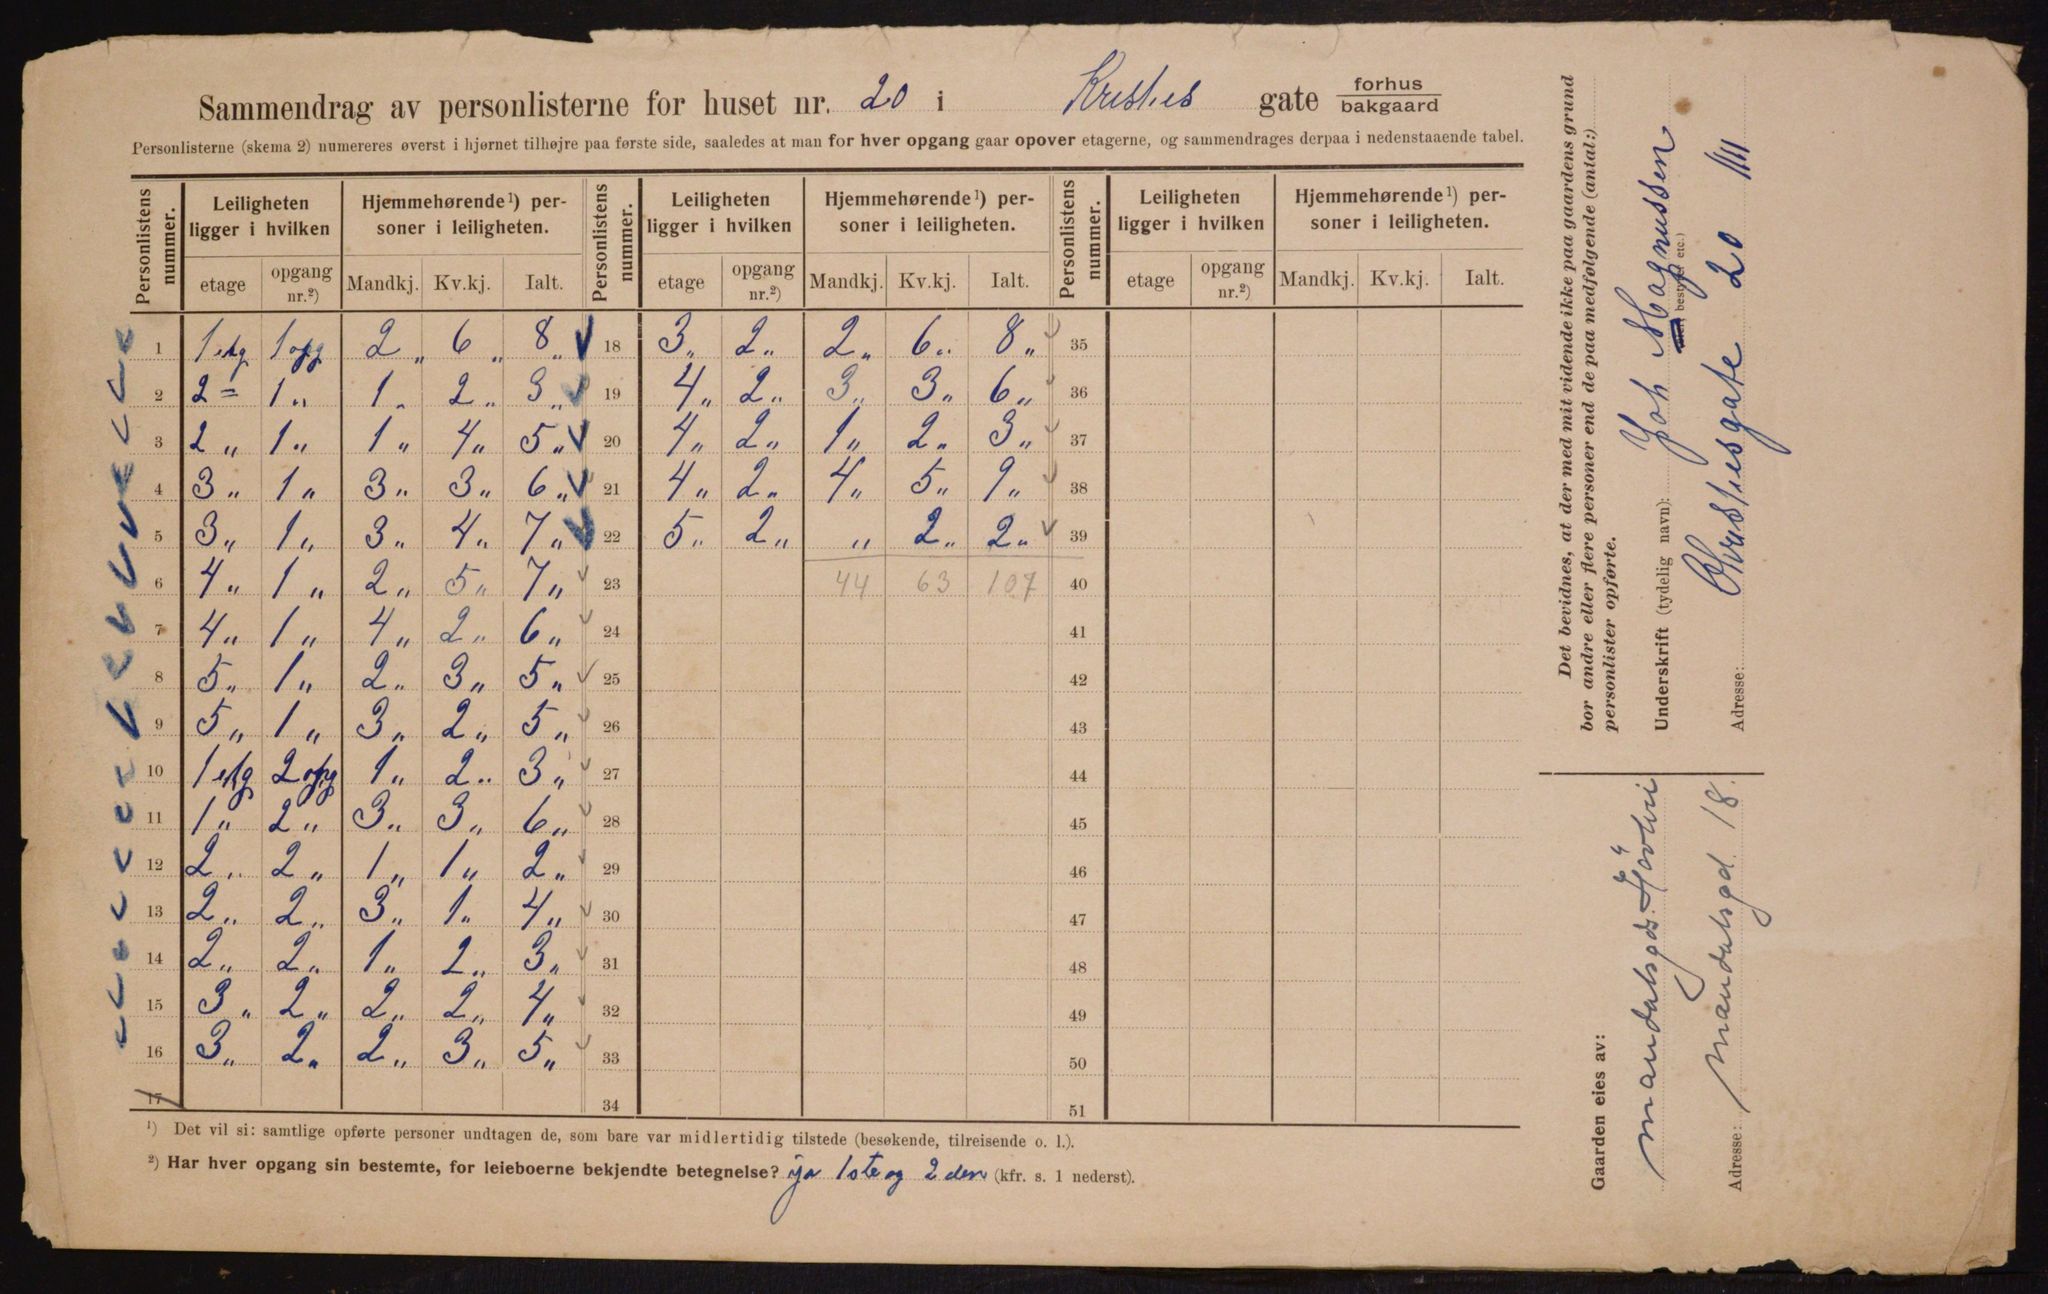 Sammendrag av personlisterne for huset nr. 20 i Kristies gate forhus bakgaard
Personlisterne (skema 2) numereres øverst i hjørnet tilhøjre paa første side, saaledes at man for hver opgang gaar opover etagerne, og sammendrages derpaa i nedenstaaende tabel.
Personlistens nummer. Leiligheten ligger i hvilken Hjemmehørende ¹) personer i leiligheten. Personlistens nummer. Leiligheten ligger i hvilken Hjemmehørende ¹) personer i leiligheten. Personlistens nummer. Leiligheten ligger i hvilken Hjemmehørende ¹) personer i leiligheten.
etage opgang nr.²) Mandkj. Kv.kj. Ialt. etage opgang nr.²) Mandkj. Kv.kj. Ialt. etage opgang nr.²) Mandkj. Kv.kj. Ialt.
1 1 etg 1 opg 2 „ 6 „ 8 „ 18 3 „ 2 „ 2 „ 6 „ 8 „ 35
2 2 = 1 „ 1 „ 2 „ 3 „ 19 4 „ 2 „ 3 „ 3 „ 6 „ 36
3 2 „ 1 „ 1 „ 4 „ 5 „ 20 4 „ 2 „ 1 „ 2 „ 3 „ 37
4 3 „ 1 „ 3 „ 3 „ 6 „ 21 4 „ 2 „ 4 „ 5 „ 9 „ 38
5 3 „ 1 „ 3 „ 4 „ 7 „ 22 5 „ 2 „ „ 2 „ 2 „ 39
6 4 „ 1 „ 2 „ 5 „ 7 „ 23 44 63 107 40
7 4 „ 1 „ 4 „ 2 „ 6 „ 24 41
8 5 „ 1 „ 2 „ 3 „ 5 „ 25 42
9 5 „ 1 „ 3 „ 2 „ 5 „ 26 43
10 1 etg 2 opg 1 „ 2 „ 3 „ 27 44
11 1 „ 2 „ 3 „ 3 „ 6 „ 28 45
12 2 „ 2 „ 1 „ 1 „ 2 „ 29 46
13 2 „ 2 „ 3 „ 1 „ 4 „ 30 47
14 2 „ 2 „ 1 „ 2 „ 3 „ 31 48
15 3 „ 2 „ 2 „ 2 „ 4 „ 32 49
16 3 „ 2 „ 2 „ 3 „ 5 „ 33 50
17 34 51
¹) Det vil si: samtlige opførte personer undtagen de, som bare var midlertidig tilstede (besøkende, tilreisende o. l.).
²) Har hver opgang sin bestemte, for leieboerne bekjendte betegnelse? ja 1ste og 2den (kfr. s. 1 nederst).
Det bevidnes, at der med mit vidende ikke paa gaardens grund
bor andre eller flere personer end de paa medfølgende (antal:)
personlister opførte.
Underskrift (tydelig navn): Joh Magnussen
Adresse: Kristiesgate 20
Gaarden eies av:
Mandalsgds
Adresse: Mandalsgd. 18.